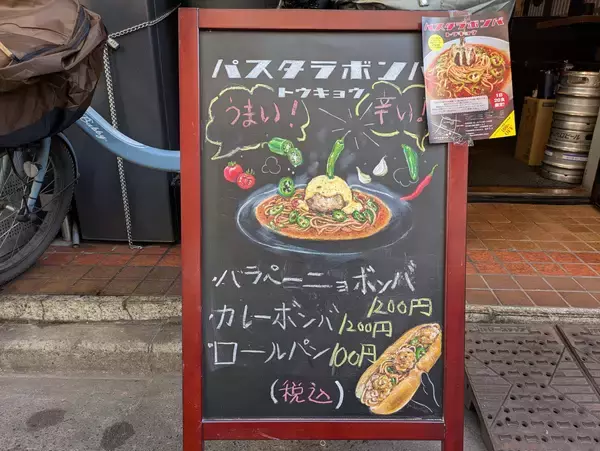 パスタラボンバ
トウキョウ
うまい!
辛い!
パスタラボンバ
トウキョウ
ハラペーニョボンバ
1200円
カレーボンバ 1200円
ロールパン 100円
(税込)